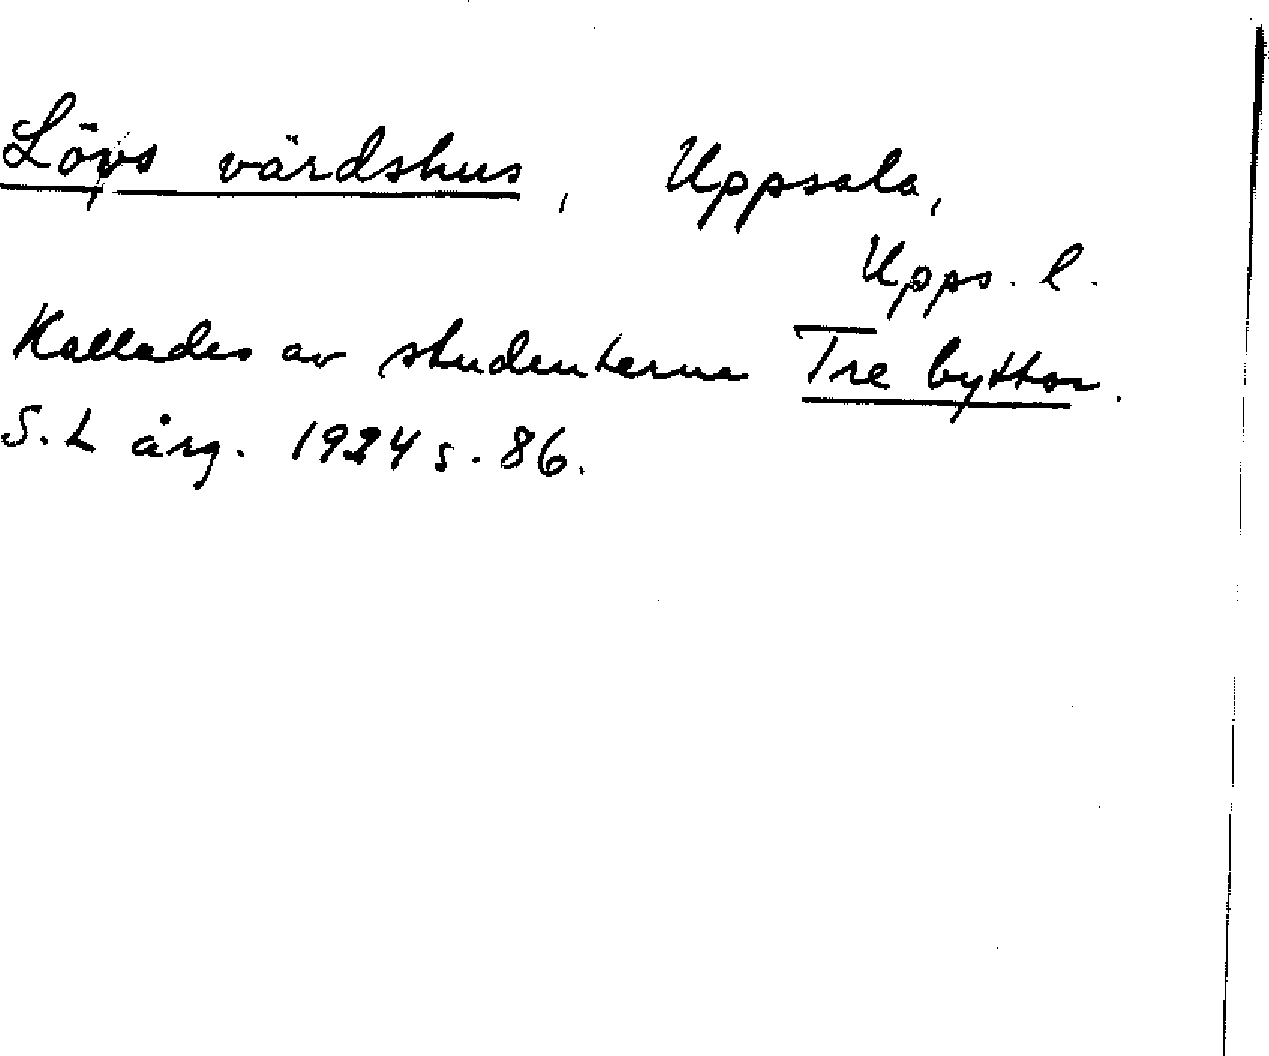 Lövs värdshus, Uppsala,
Upps. l.
Kallades av studenterna Tre byttor.
S. L årg. 1924 s. 86.